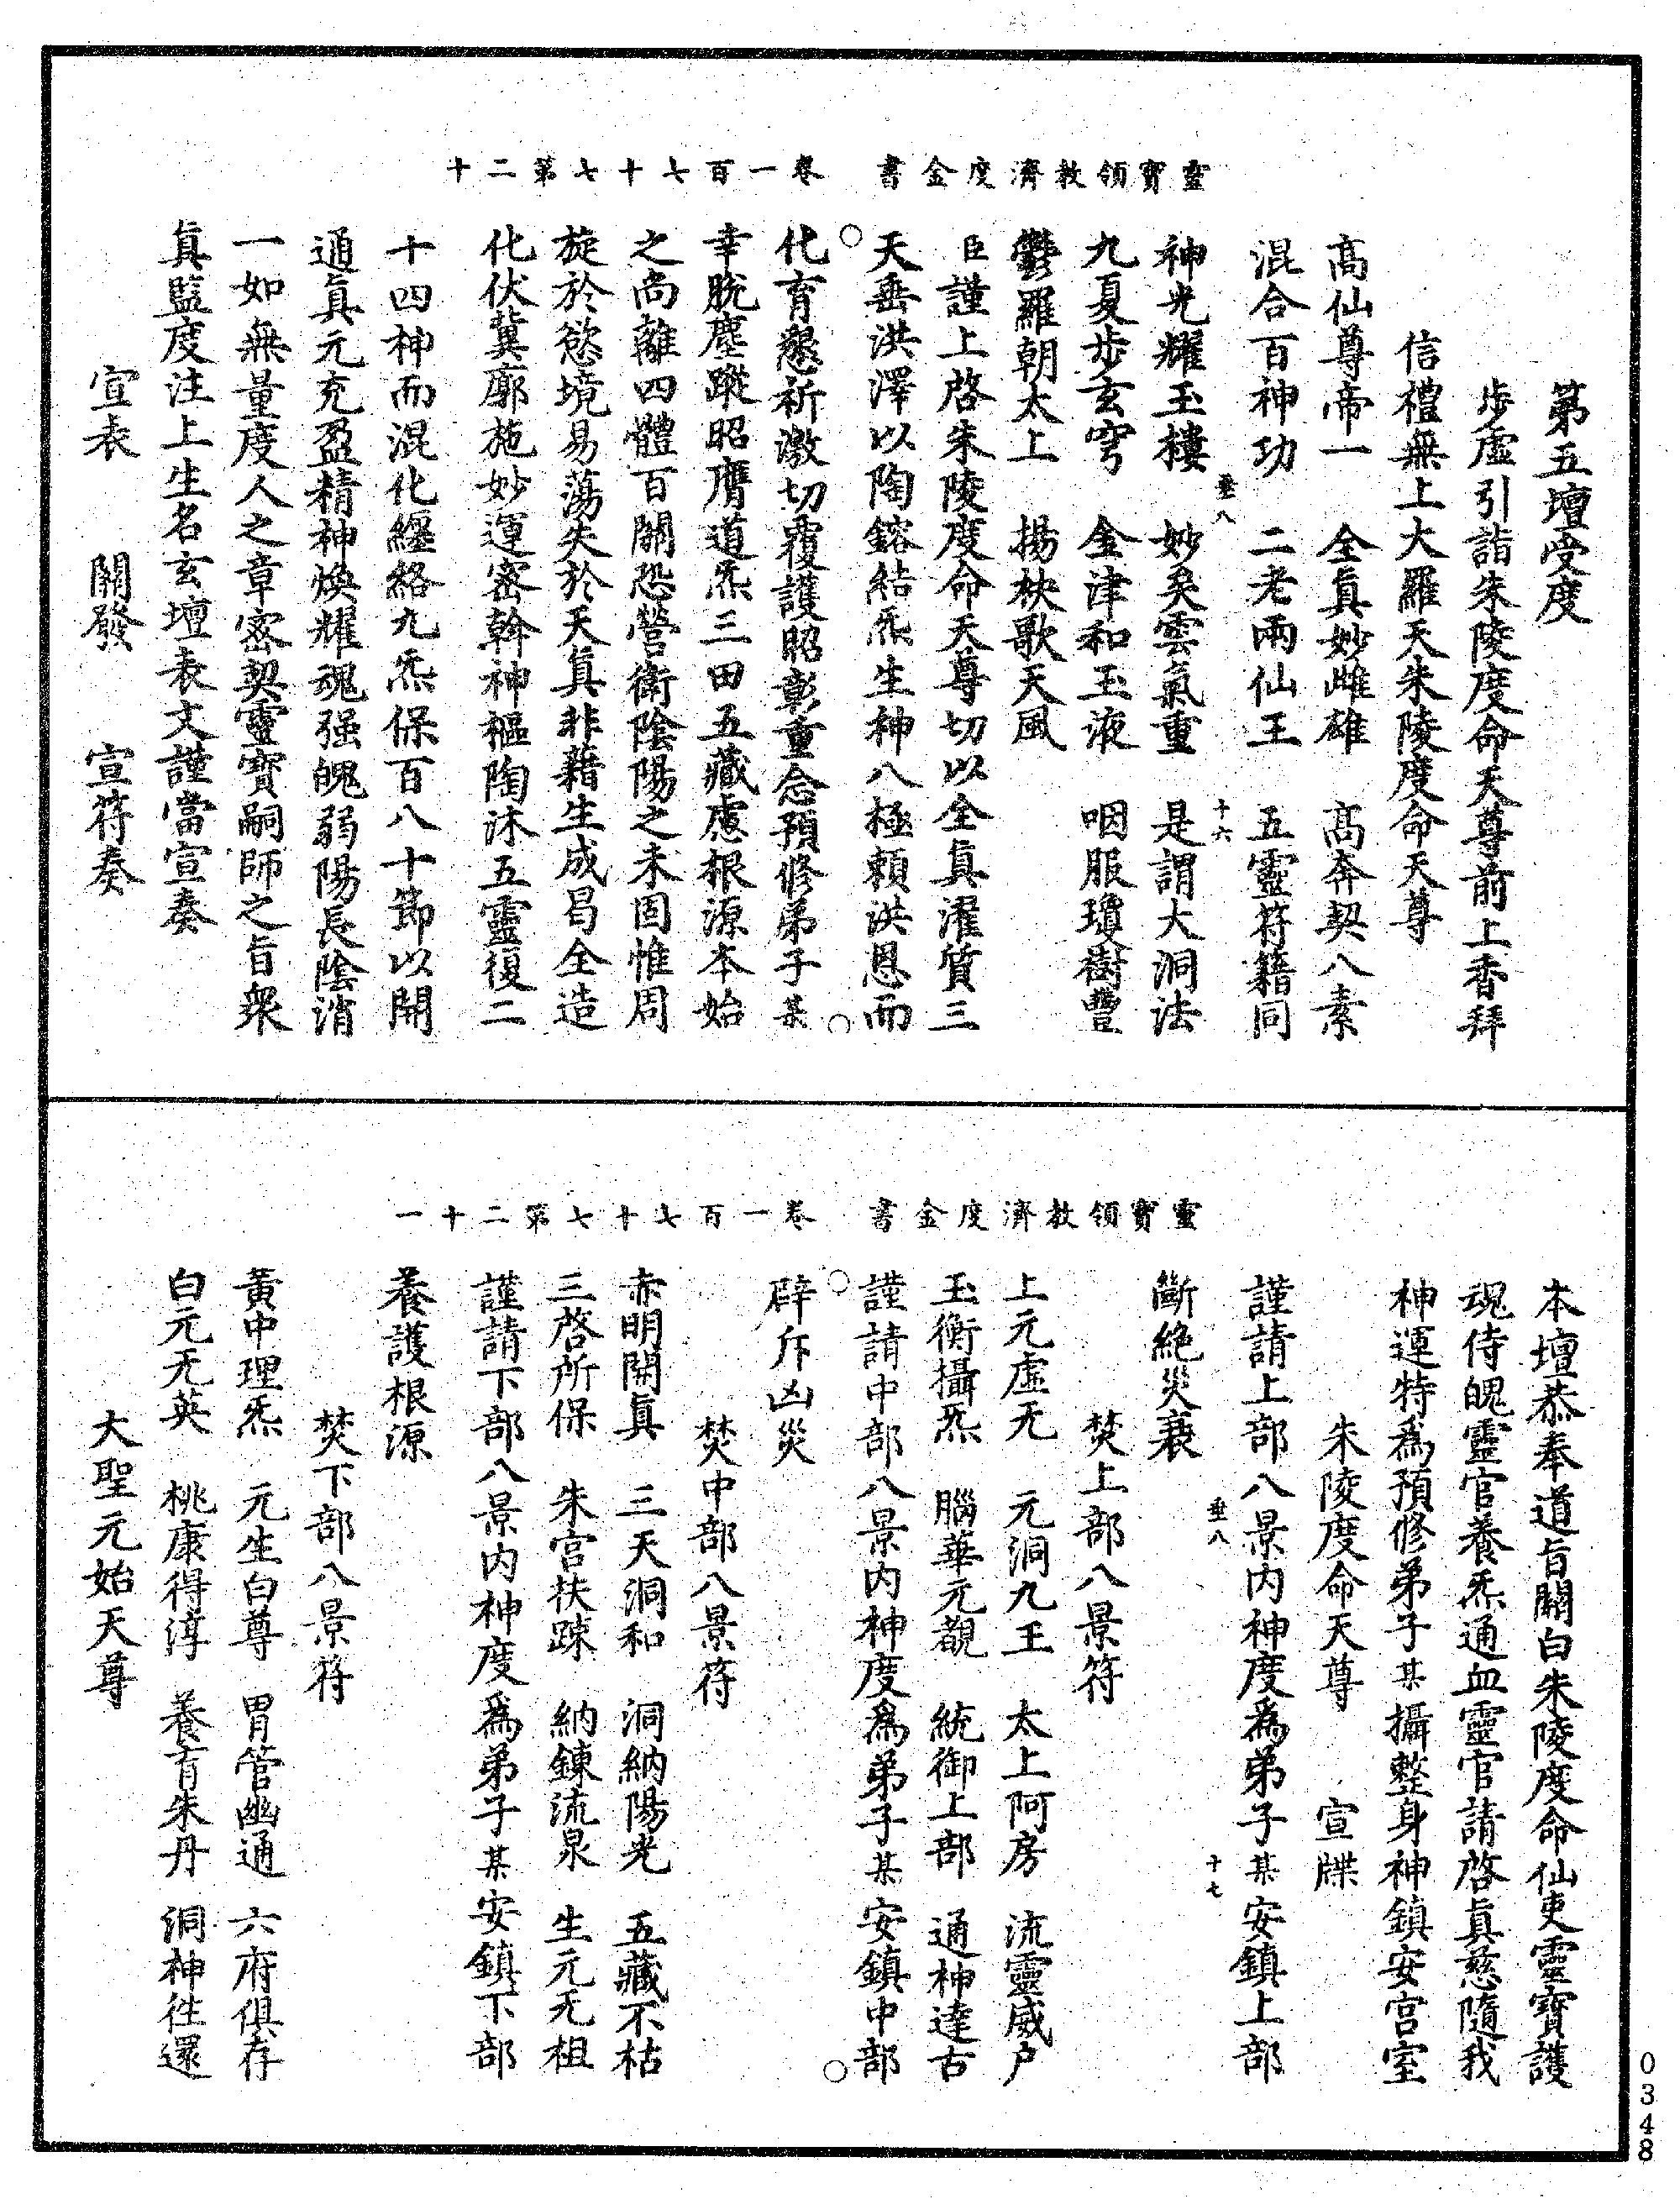 靈寶領教濟度金書　卷一百七十七第二十
第五壇受度
步虛引詣朱陵度命天尊前上香拜
信禮無上大羅天朱陵度命天尊
高仙尊帝一　全真妙雌雄　高奔契八素
混合百神功　二老兩仙王　五靈符籍同
垂八　十六
神光耀玉樓　妙矣雲氣重　是謂大洞法
九夏步玄穹　金津和玉液　咽服瓊樹豐
鬱羅朝太上　揚袂歌天風
臣謹上啓朱陵度命天尊切以全真濯質三
天垂洪澤以陶鎔結炁生神八極賴洪恩而
化育懇祈激切覆護昭彰重念預修弟子某
幸脫塵蹤昭膺道炁三田五藏慮根源本始
之尚離四體百關恐營衛陰陽之未固惟周
旋於慾境易蕩失於天真非藉生成曷全造
化伏冀廓施妙運密斡神樞陶沐五靈復二
十四神而混化纏絡九炁保百八十節以開
通真元充盈精神煥耀魂强魄弱陽長陰消
一如無量度人之章密契靈寶嗣師之旨衆
真監度注上生名玄壇表文謹當宣奏
宣表　關發　宣符奏
靈寶領教濟度金書　卷一百七十七第二十一
本壇恭奉道旨關白朱陵度命仙吏靈寶護
魂侍魄靈官養炁通血靈官請啓真慈隨我
神運特爲預修弟子某攝整身神鎮安宮室
朱陵度命天尊　宣牒
謹請上部八景內神度爲弟子某安鎮上部
垂八　十七
斷絕災衰
焚上部八景符
上元虛无　元洞九王　太上阿房　流靈威户
玉衡攝炁　腦華元覩　統御上部　通神達古
謹請中部八景內神度爲弟子某安鎮中部
辟斥凶災
焚中部八景符
赤明開真　三天洞和　洞納陽光　五藏不枯
三啓所保　朱宮扶踈　納鍊流泉　生元无柤
謹請下部八景內神度爲弟子某安鎮下部
養護根源
焚下部八景符
黃中理炁　元生白尊　胃管幽通　六府俱存
白元无英　桃康得淳　養育朱丹　洞神徃還
大聖元始天尊
0348